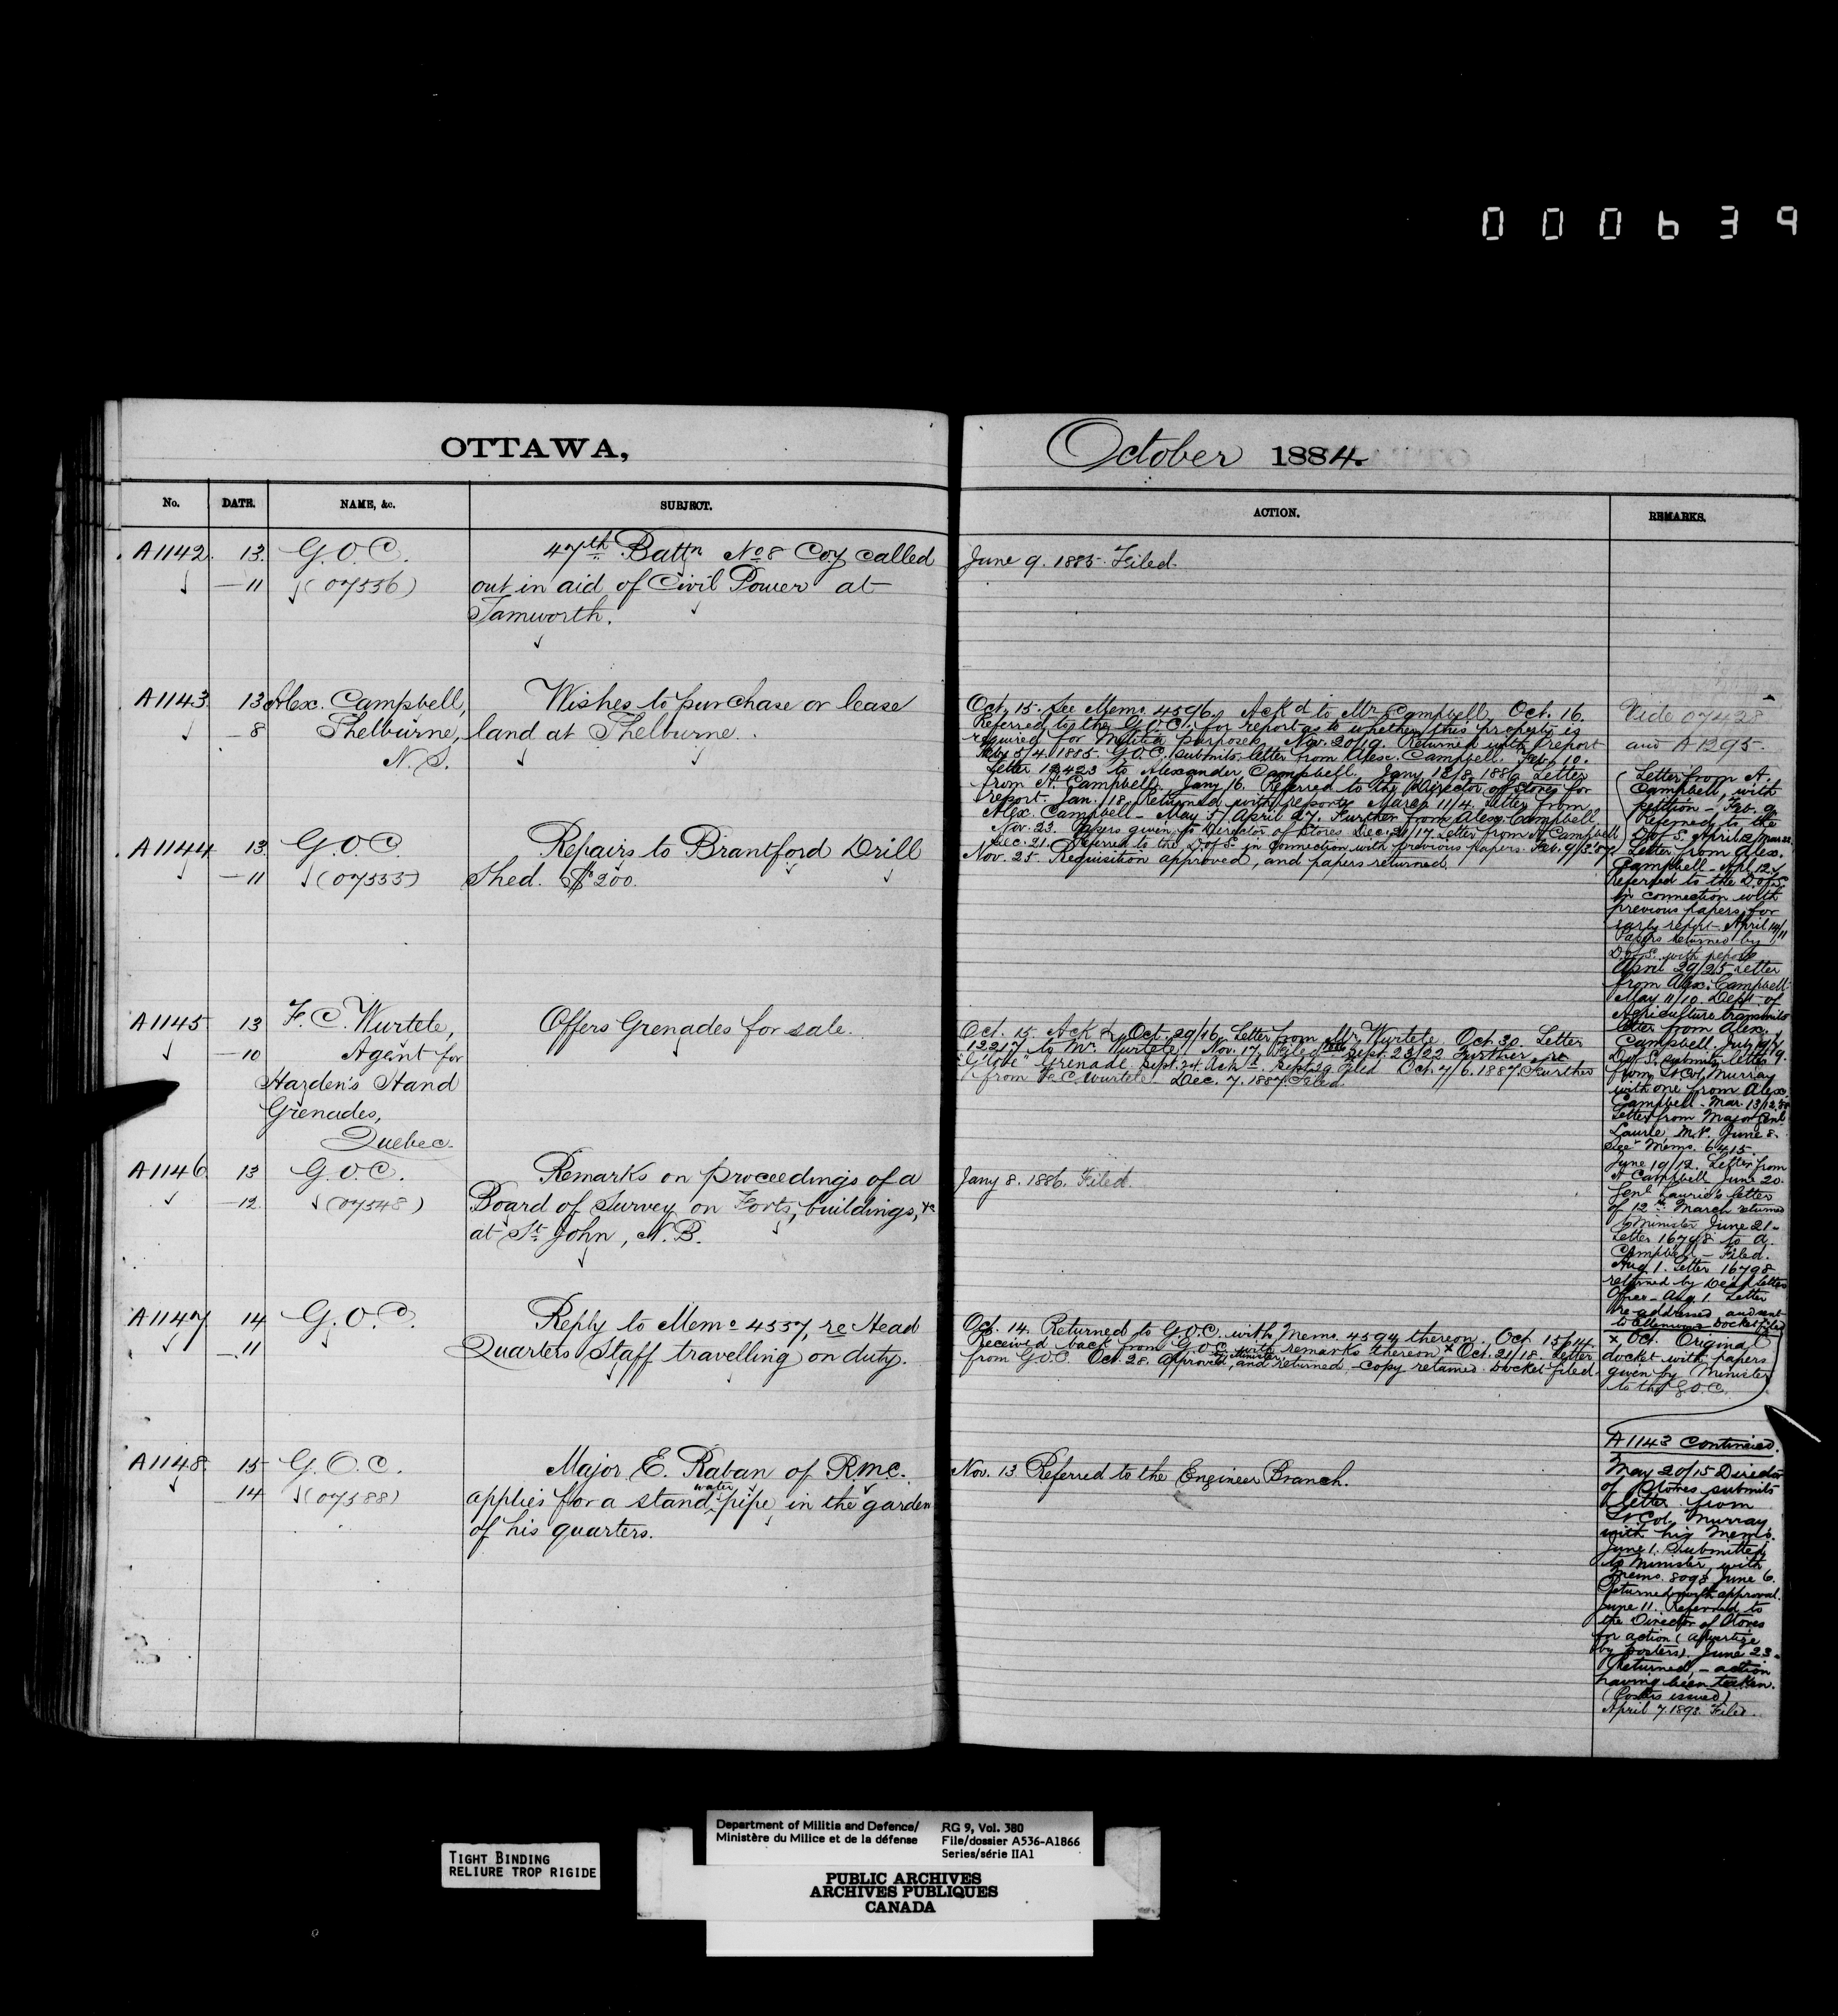 000639
OTTAWA,
No. DATE. NAME, &c. SUBJECT.
A1142. 13. G.O.C. 47th Battn No 8 Coy called
— 11 (07536) out in aid of Civil Power at
Tamworth.
A1143 13 Alex. Campbell, Wishes to purchase or lease
— 8 Shelburne, land at Shelburne.
N.S.
A1144 13 G.O.C. Repairs to Brantford Drill
— 11 (07535) Shed. $200.
A1145 13 F.C. Wurtele, Offers Grenades for sale.
— 10 Agent for
Harden's Hand
Grenades,
Quebec.
A1146 13 G.O.C. Remarks on proceedings of a
— 12. (07548) Board of Survey on Forts, buildings, &c
at St John, N.B.
A1147 14 G.O.C. Reply to Memo 4537, re Head
— 11 Quarters Staff travelling on duty.
A1148. 15 G.O.C. Major E. Raban of R.M.C.
— 14 (07588) applies for a stand water pipe in the garden
of his quarters.
October 1884.
ACTION. REMARKS.
June 9. 1885. Filed.
Oct. 15. See Memo. 4596. Ack'd to Mr Campbell Oct. 16.
Referred to the G.O.C. for report as to whether this property is
required for Militia purposes. Nov. 20/19. Returned with report
Feby 5/4. 1885. G.O.C. submits letter from Alex. Campbell. Feb. 10.
Letter 12423 to Alexander Campbell. Jany 12/8 1886 Letter
from A. Campbell. Jany 16. Referred to the Director of Stores for
report. Jan. 18. Returned with report. March 11/4. Letter from
Alex. Campbell - May 5/ April 27. Further from Alex. Campbell.
Nov. 23. Papers given to Director of Stores Dec. 21/17 Letter from A. Campbell
Dec. 21. Referred to the D. of S. in connection with previous papers. Feb. 9/3. 87
Nov. 25. Requisition approved, and papers returned.
Oct. 15. Ack'd. Oct. 29/16. Letter from Mr Wurtele Oct. 30. Letter
12217 to Mr. Wurtele. Nov. 17. Filed 1886 Sept. 23/22 Further re
"Globe" Grenade. Sept. 24. Ack'd. Sept. 29 Filed Oct. 7/6. 1887. Further
from F.C. Wurtele. Dec. 7. 1887. Filed.
Jany 8. 1886. Filed.
Oct. 14. Returned to G.O.C. with Memo. 4594 thereon. Oct. 15/14
Received back from G.O.C. with remarks thereon x Oct. 21/18. Letter
from G.O.C. Oct. 28. Approved by Minister, and returned - copy retained. Docket filed.
Nov. 13. Referred to the Engineer Branch.
Vide 07428
and A1295.
Letter from A.
Campbell, with
petition - Feb. 9.
Referred to the
D. of S. April 2/
Letter from Alex.
Campbell - Apl 12.
Referred to the D. of S.
in connection with
previous papers, for
early report - April 19/11
Papers returned by
D. of S. with report
April 29/25 letter
from Alex. Campbell
May 11/10. Dept. of
Agriculture transmits
letter from Alex.
Campbell. July 19/7
D. of S. submits letter
from Lt Col. Murray
with one from Alex.
Campbell - Mar. 13/12. 88
Letter from Major Genl
Laurie, M.P. June 8.
See Memo. 6415.
June 19/12. Letter from
A Campbell June 20.
Genl Laurie's letter
of 12th March returned
to Minister June 21 -
Letter 16798 to A.
Campbell - Filed.
Aug 1. Letter 16798
returned by Dead Letter
Office - Aug 1. Letter
re-addressed and sent
Docket filed
x Oct. Original
docket with papers
given by Minister
to the G.O.C.
A1143 Continued.
May 20/15 Director
of Stores submits
letter from
Lt Col. Murray
with his Memo.
June 1. Submitted
to Minister with
Memo. 8093 June 6.
Returned with approval.
June 11. Referred to
the Director of Stores
for action (advertise
by posters) June 23.
Returned, - action
having been taken.
(Posters issued)
April 7 1898. Filed.
TIGHT BINDING
RELIURE TROP RIGIDE
Department of Militia and Defence/
Ministère du Milice et de la défense
RG 9, Vol. 380
File/dossier A536-A1866
Series/série IIA1
PUBLIC ARCHIVES
ARCHIVES PUBLIQUES
CANADA